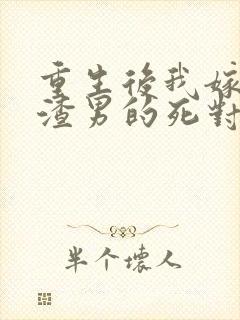 重生後我嫁
渣男的死對
半个壞人